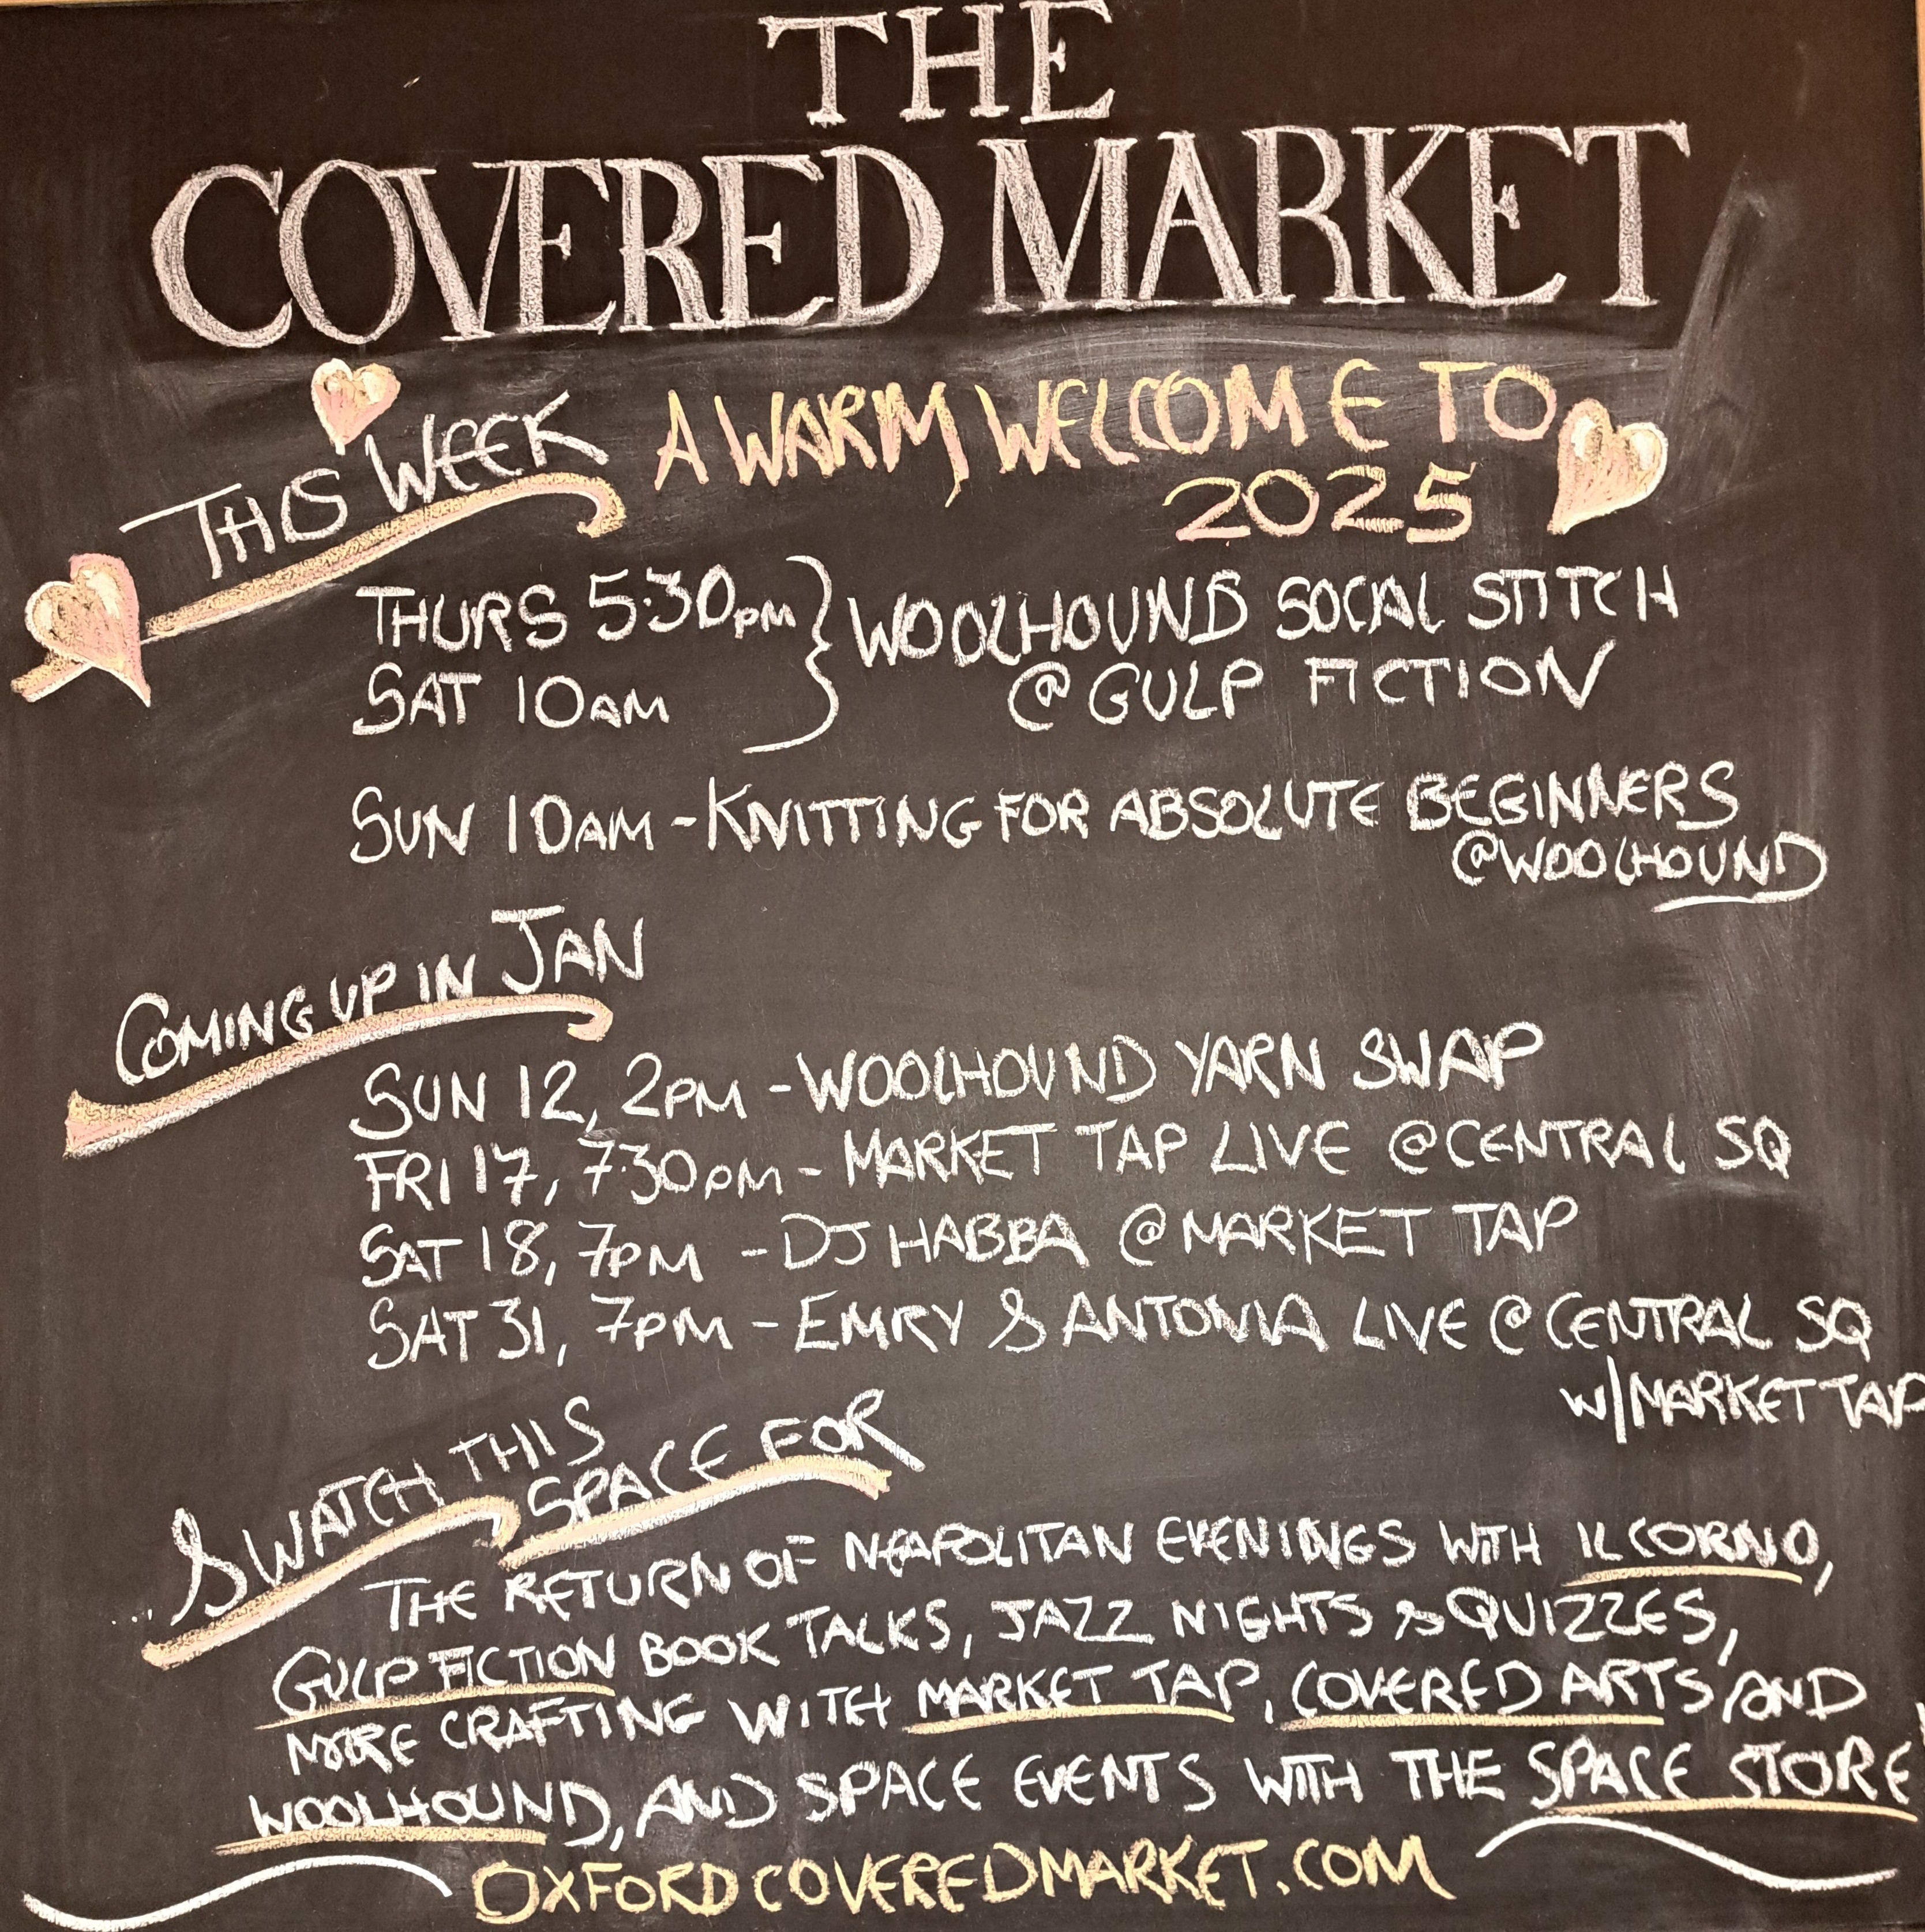 THE
COVERED MARKET
THIS WEEK
A WARM WELCOME TO
2025
THURS 5:30PM } WOOLHOUND SOCIAL STITCH
SAT 10AM @ GULP FICTION
SUN 10AM - KNITTING FOR ABSOLUTE BEGINNERS
@WOOLHOUND
COMING UP IN JAN
SUN 12, 2PM - WOOLHOUND YARN SWAP
FRI 17, 7:30PM - MARKET TAP LIVE @CENTRAL SQ
SAT 18, 7PM - DJ HABBA @MARKET TAP
SAT 31, 7PM - EMRY & ANTONIA LIVE @CENTRAL SQ
W/MARKET TAP
...SWATCH THIS
SPACE FOR
THE RETURN OF NEAPOLITAN EVENINGS WITH IL CORNO,
GULP FICTION BOOK TALKS, JAZZ NIGHTS & QUIZZES,
MORE CRAFTING WITH MARKET TAP, COVERED ARTS AND
WOOLHOUND, AND SPACE EVENTS WITH THE SPACE STORE
OXFORDCOVEREDMARKET.COM